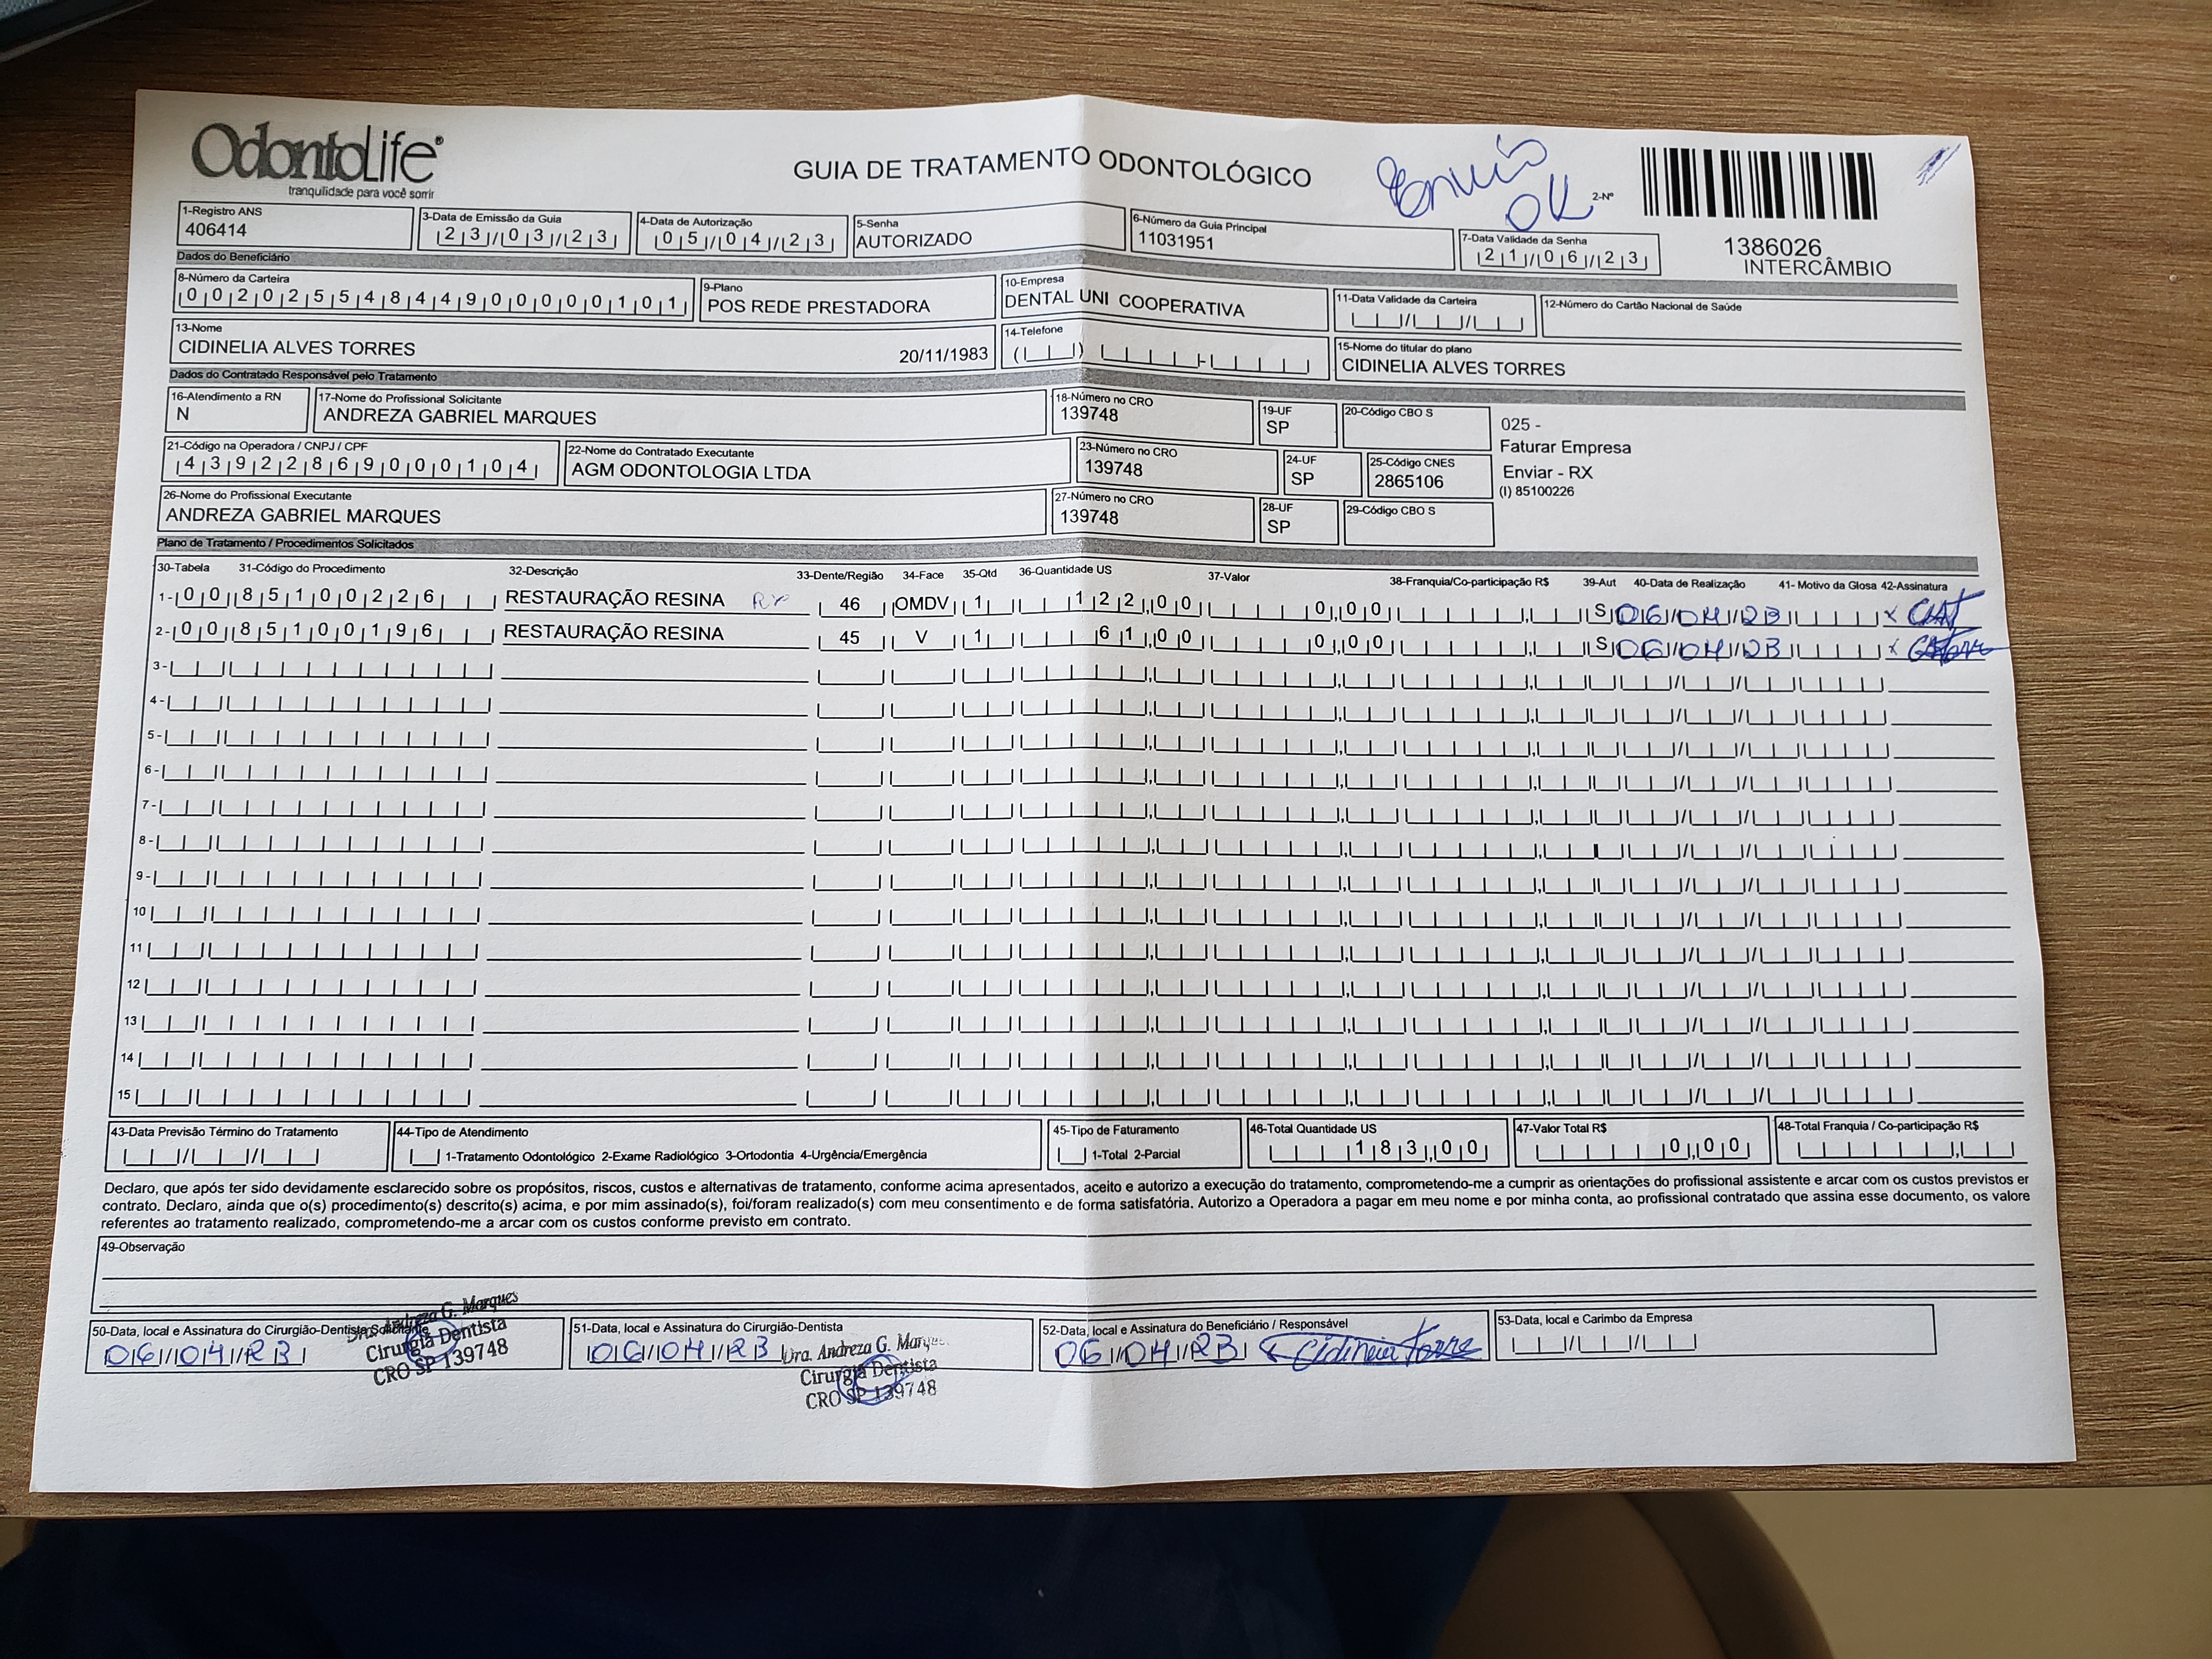 OdontoLife®
tranquilidade para você sorrir
GUIA DE TRATAMENTO ODONTOLÓGICO
Envio
OK
2-Nº
1386026
INTERCÂMBIO
1-Registro ANS
406414
3-Data de Emissão da Guia
23/03/23
4-Data de Autorização
05/04/23
5-Senha
AUTORIZADO
6-Número da Guia Principal
11031951
7-Data Validade da Senha
21/06/23
Dados do Beneficiário
8-Número da Carteira
00202554844900000101
9-Plano
POS REDE PRESTADORA
10-Empresa
DENTAL UNI COOPERATIVA
11-Data Validade da Carteira
12-Número do Cartão Nacional de Saúde
13-Nome
CIDINELIA ALVES TORRES 20/11/1983
14-Telefone
15-Nome do titular do plano
CIDINELIA ALVES TORRES
Dados do Contratado Responsável pelo Tratamento
16-Atendimento a RN
N
17-Nome do Profissional Solicitante
ANDREZA GABRIEL MARQUES
18-Número no CRO
139748
19-UF
SP
20-Código CBO S
025 -
Faturar Empresa
Enviar - RX
(I) 85100226
21-Código na Operadora / CNPJ / CPF
43922869000104
22-Nome do Contratado Executante
AGM ODONTOLOGIA LTDA
23-Número no CRO
139748
24-UF
SP
25-Código CNES
2865106
26-Nome do Profissional Executante
ANDREZA GABRIEL MARQUES
27-Número no CRO
139748
28-UF
SP
29-Código CBO S
Plano de Tratamento / Procedimentos Solicitados
30-Tabela 31-Código do Procedimento 32-Descrição 33-Dente/Região 34-Face 35-Qtd 36-Quantidade US 37-Valor 38-Franquia/Co-participação R$ 39-Aut 40-Data de Realização 41- Motivo da Glosa 42-Assinatura
1- 00 85100226 RESTAURAÇÃO RESINA RX 46 OMDV 1 122,00 0,00 S 06/04/23 x
2- 00 85100196 RESTAURAÇÃO RESINA 45 V 1 61,00 0,00 S 06/04/23 x
3-
4-
5-
6-
7-
8-
9-
10
11
12
13
14
15
43-Data Previsão Término do Tratamento
44-Tipo de Atendimento
1-Tratamento Odontológico 2-Exame Radiológico 3-Ortodontia 4-Urgência/Emergência
45-Tipo de Faturamento
1-Total 2-Parcial
46-Total Quantidade US
183,00
47-Valor Total R$
0,00
48-Total Franquia / Co-participação R$
Declaro, que após ter sido devidamente esclarecido sobre os propósitos, riscos, custos e alternativas de tratamento, conforme acima apresentados, aceito e autorizo a execução do tratamento, comprometendo-me a cumprir as orientações do profissional assistente e arcar com os custos previstos er
contrato. Declaro, ainda que o(s) procedimento(s) descrito(s) acima, e por mim assinado(s), foi/foram realizado(s) com meu consentimento e de forma satisfatória. Autorizo a Operadora a pagar em meu nome e por minha conta, ao profissional contratado que assina esse documento, os valore
referentes ao tratamento realizado, comprometendo-me a arcar com os custos conforme previsto em contrato.
49-Observação
50-Data, local e Assinatura do Cirurgião-Dentista Solicitante
06/04/23
Dra. Andreza G. Marques
Cirurgiã Dentista
CRO SP 139748
51-Data, local e Assinatura do Cirurgião-Dentista
06/04/23
Dra. Andreza G. Marques
Cirurgiã Dentista
CRO SP 139748
52-Data, local e Assinatura do Beneficiário / Responsável
06/04/23
53-Data, local e Carimbo da Empresa